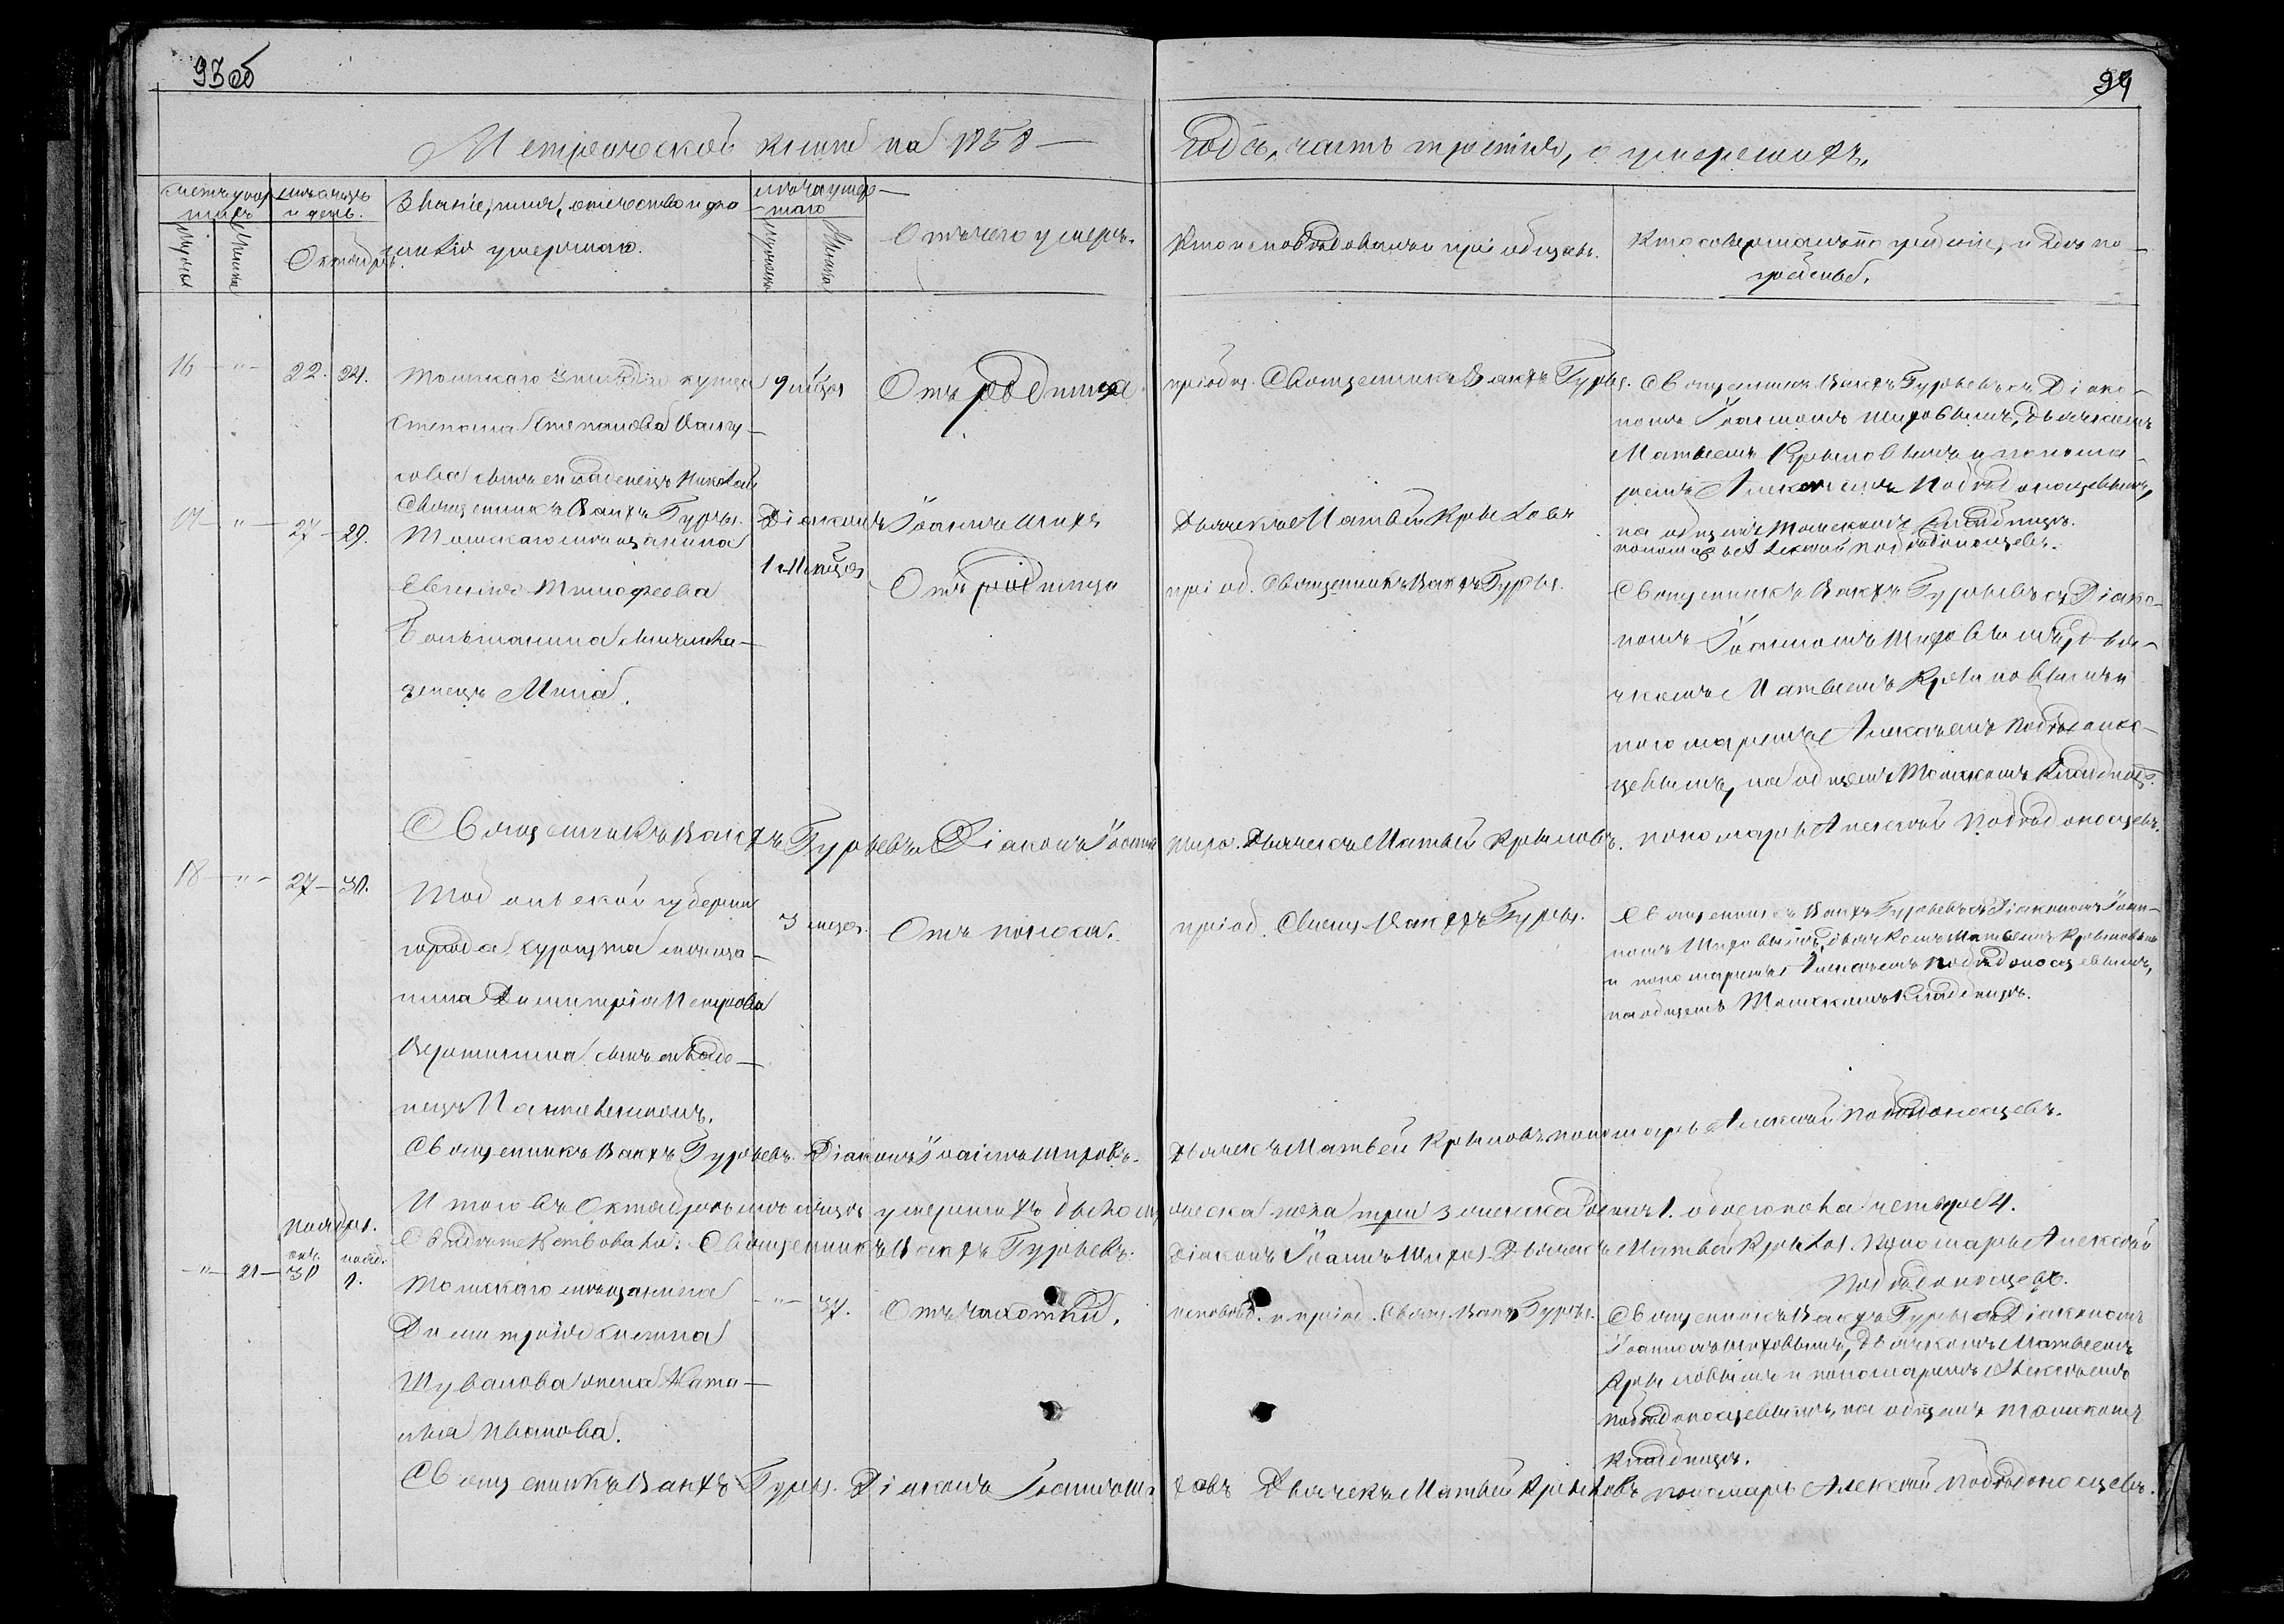 93об
94
Метрической книги на 1858 —
годъ, часть третья, о умершихъ.
Счетъ умер-
шихъ
Мужска
Женска
мѣсяцъ
и день.
Октябрь
Званіе, имя, отчество и фа-
милія умершаго.
лѣта умер-
шаго
Мужеска
Женска
Отъ чего умеръ.
Кто исповѣдовалъ и пріобщалъ.
Кто совершалъ погребеніе, и гдѣ по-
гребены.
16 — " — 22. 24.
Томскаго 3 гильдіи купца
Степана Степанова
сова сынъ младенецъ Николай
9 мѣсяц
Отъ родимца
пріобщ. Священникъ Вакхъ Гурьев.
Священникъ Вакхъ Гурьевъ съ Діако-
номъ Іоанномъ Шировымъ, Дьячкомъ
Матвеемъ Крыловымъ и понома-
ремъ Алексеемъ Побѣдоносцевымъ,
на общемъ Томскомъ Кладбищѣ.
Священникъ Вакхъ Гурьев. Діаконъ Іоаннъ Дьячекъ Матвей Крыловъ пономарь Алексѣй Побѣдоносцевъ.
17 — " — 27 — 29.
Томскаго мѣщанина
Евгенія Тимофеева
Большанина сынъ мла-
денецъ Мина.
1 мѣсяц
Отъ родимца
пріоб. Священникъ Вакхъ Гурьев.
Священникъ Вакхъ Гурьевъ съ Діако-
номъ Іоанномъ Шировымъ, дья-
чкомъ Матвеемъ Крыловымъ и
пономаремъ Алексеемъ Побѣдонос-
цевымъ, на общемъ Томскомъ Кладбищѣ.
Священникъ Вакхъ Гурьевъ Діаконъ Іоаннъ Широ. Дьячекъ Матвей Крыловъ. пономарь Алексѣй Побѣдоносцевъ.
18 — " — 27 — 30.
Тобольской губерніи
города мѣща-
нина Димитрія Петрова
сынъ младе-
нецъ Пантелеимонъ.
3 мѣсяц.
Отъ поноса.
пріоб. Свящ Вакхъ Гурьев.
Священникъ Вакхъ Гурьевъ съ Діакономъ Іоан-
номъ Шировымъ, дьячкомъ Матвеемъ Крыловымъ
и пономаремъ Алексеемъ Побѣдоносцевымъ,
на общемъ Томскомъ Кладбищѣ.
Священникъ Вакхъ Гурьевъ. Діаконъ Іоаннъ Шировъ. Дьячекъ Матвей Крыловъ пономарь Алексѣй Побѣдоносцевъ.
Итого въ Октябрѣ мѣсяцѣ умершихъ было мужеска пола три 3 женска одинъ 1. обоего пола четыре 4.
Свидѣтельствовали: Священникъ Вакхъ Гурьевъ. Діаконъ Іоаннъ Широв Дьячекъ Матвей Крылов. Пономарь Алексѣй
Побѣдоносцевъ.
Ноябрь.
— " — 21 —
окт.
30
нояб.
1.
Томскаго мѣщанина
Димитрія
Шувалова жена Ната-
лія Иванова.
— " — 37.
Отъ чахотки.
исповѣд. и пріоб. Свящ. Вакхъ Гурьев.
Священникъ Вакхъ Гурьев съ Діакономъ
Іоанномъ Шировымъ, дьячкомъ Матвеемъ
Крыловымъ и пономаремъ Алексѣемъ
Побѣдоносцевымъ, на общемъ Томскомъ
Кладбищѣ.
Священникъ Вакхъ Гурьев. Діаконъ Іоаннъ Ши-ровъ Дьячекъ Матвей Крыловъ пономарь Алексѣй Побѣдоносцевъ.